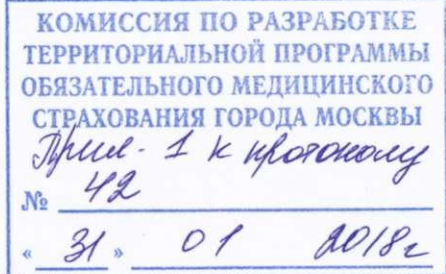 КОМИССИЯ ПО РАЗРАБОТКЕ
ТЕРРИТОРИАЛЬНОЙ ПРОГРАММЫ
ОБЯЗАТЕЛЬНОГО МЕДИЦИНСКОГО
СТРАХОВАНИЯ ГОРОДА МОСКВЫ
Прил. 1 к протоколу
№ 42
« 31 » 01 2018г